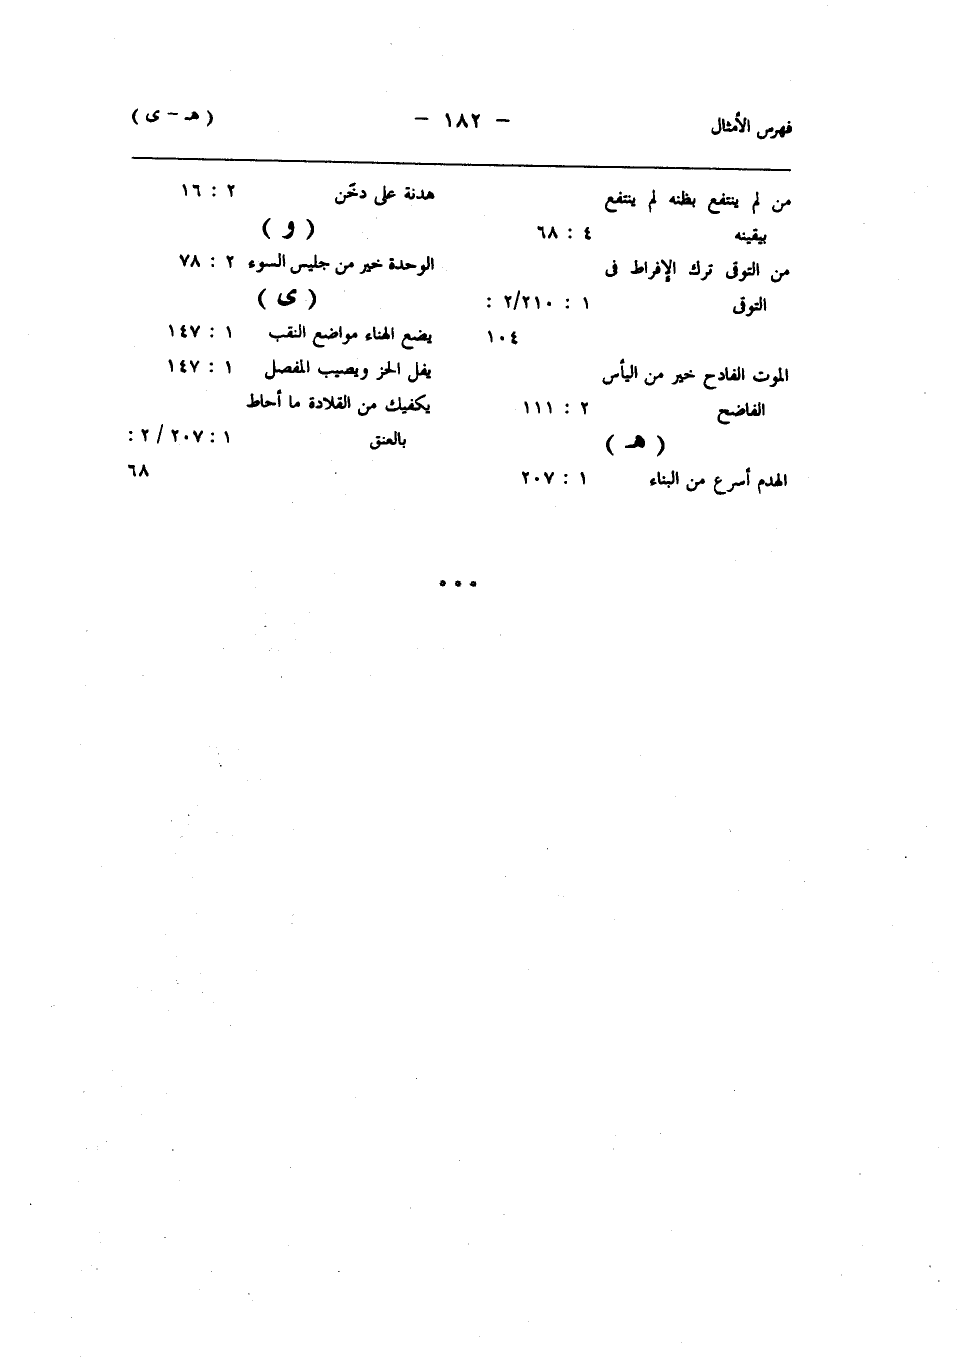 فهرس الأمثال – ١٨٢ – ( هـ – ى )
من لم ينتفع بظنه لم ينتفع
بيقينه ٤ : ٦٨
من التوقى ترك الإفراط فى
التوقى ١ : ٢/٢١٠ :
١٠٤
الموت الفادح خير من اليأس
الفاضح ٢ : ١١١
( هـ )
الهدم أسرع من البناء ١ : ٢٠٧
هدنة على دخّن ٢ : ١٦
( و )
الوحدة خير من جليس السوء ٢ : ٧٨
( ى )
يضع الهناء مواضع النقب ١ : ١٤٧
يفل الحز ويصيب المفصل ١ : ١٤٧
يكفيك من القلادة ما أحاط
بالعنق ١ : ٢٠٧ / ٢ :
٦٨
• • •